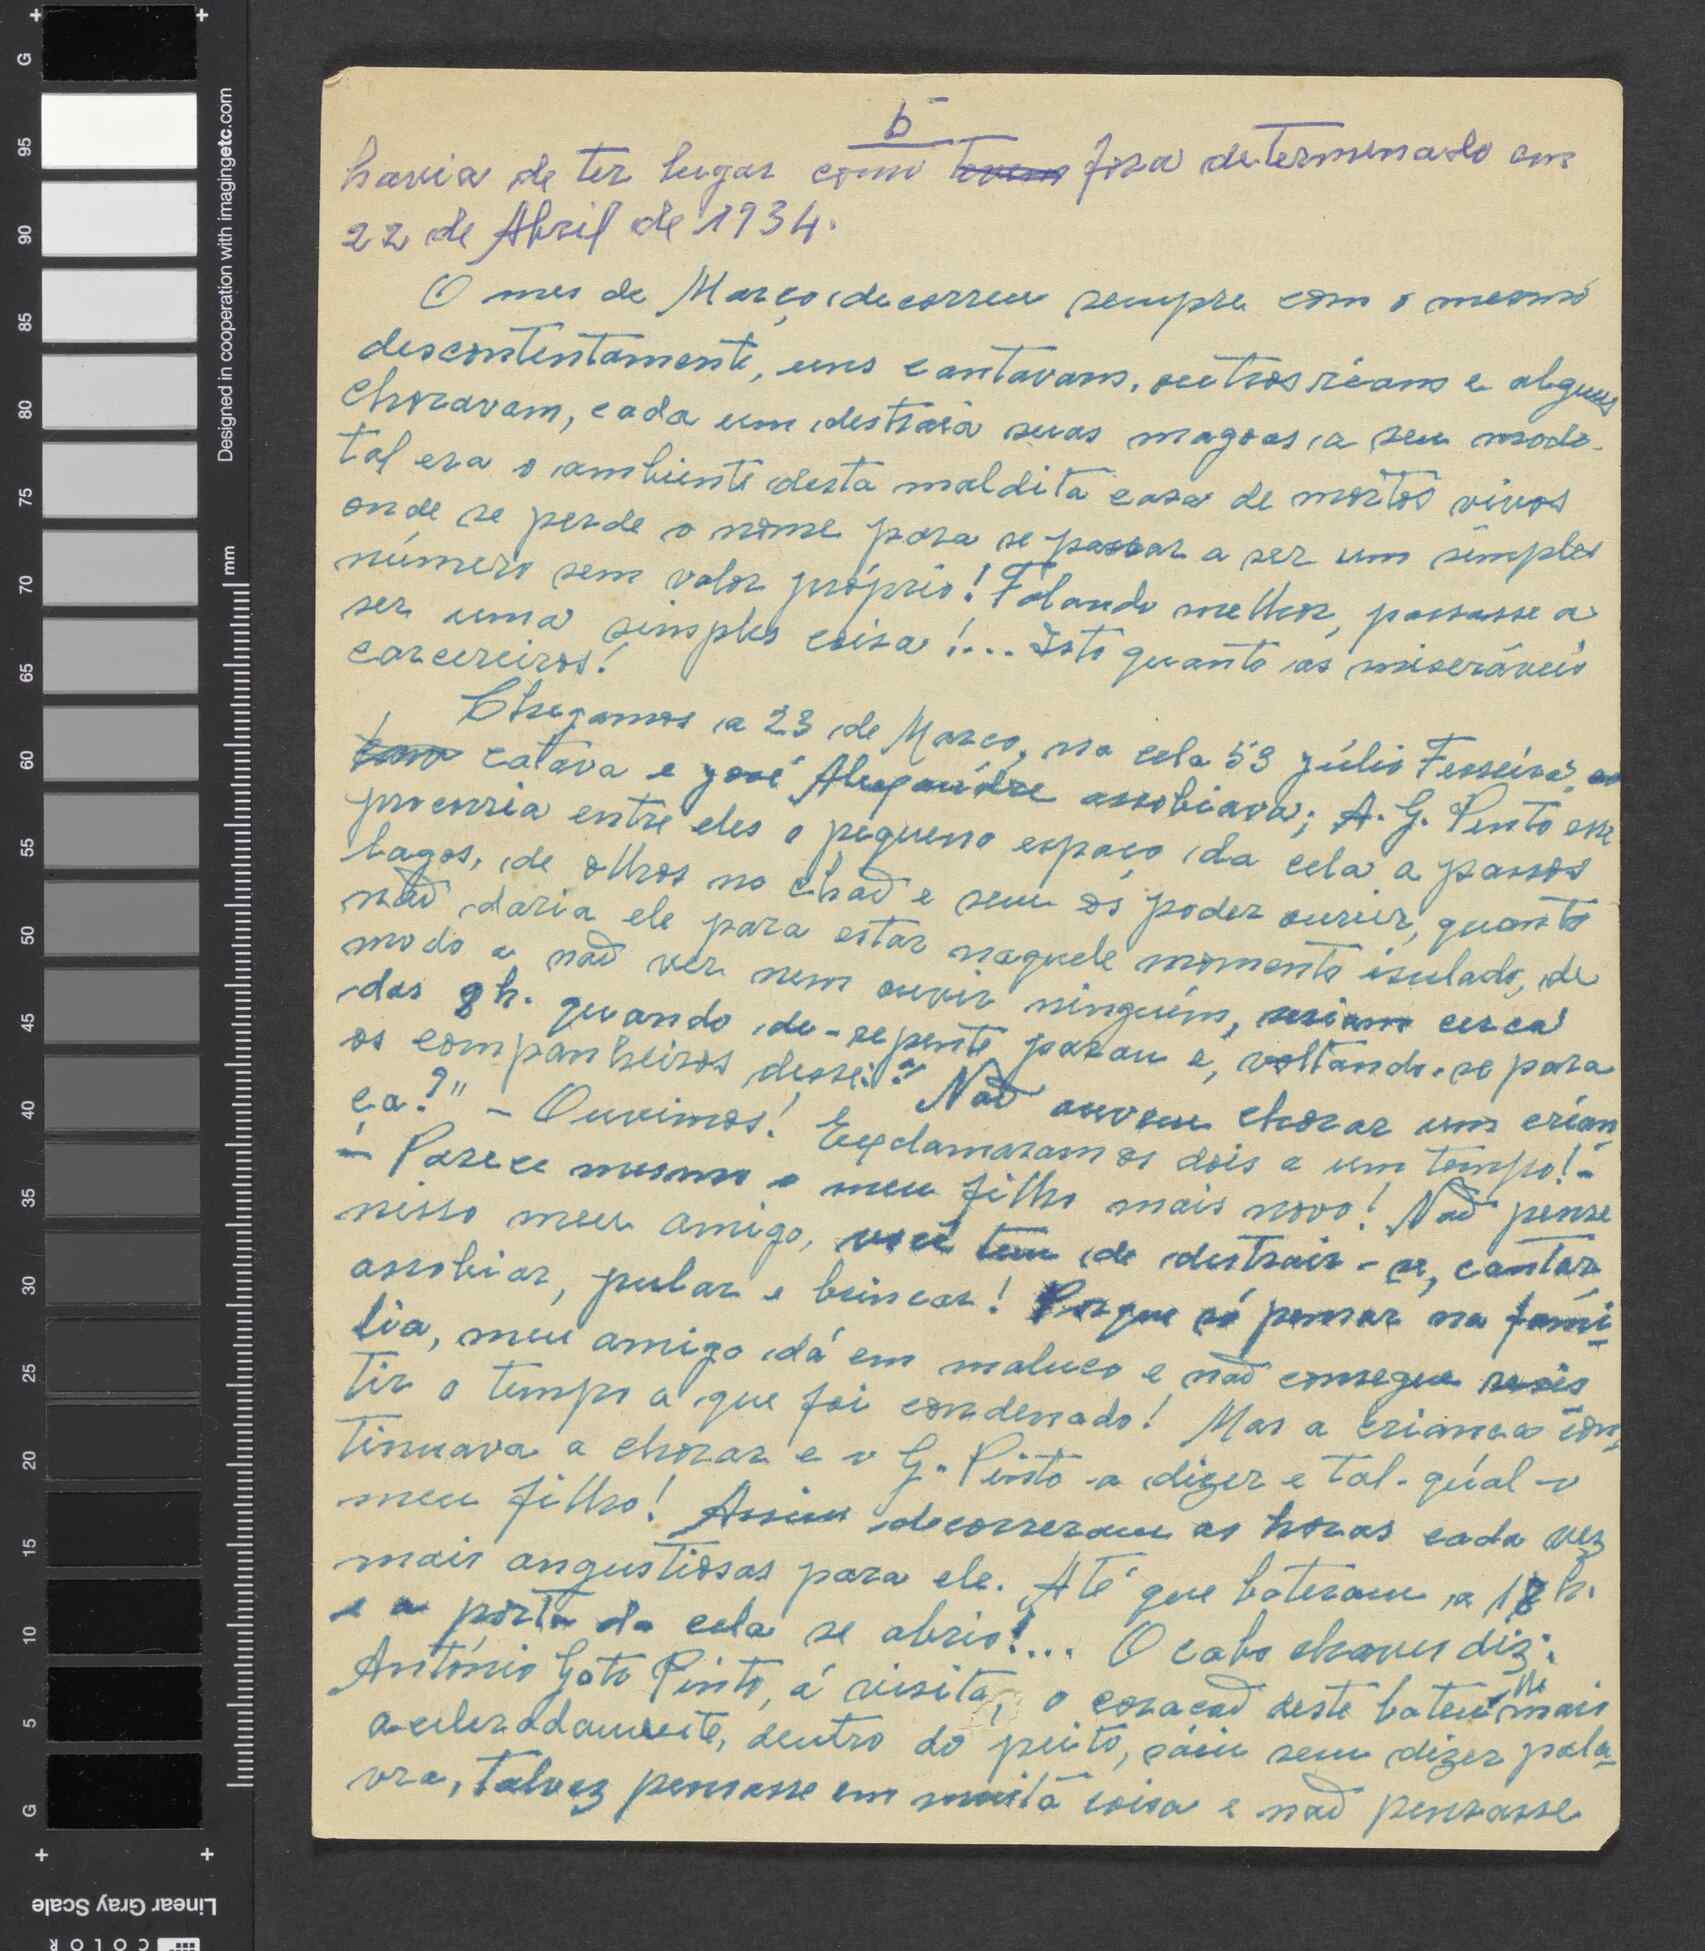 6
havia de ter lugar como fora determinado em
22 de Abril de 1934.
O mes de Março decorreu sempre com o mesmo
descontentamento, uns cantavam, outros riam e alguns
choravam, cada um destraia suas magoas a seu modo.
tal era o ambiente desta maldita casa de mortos vivos
onde se perde o nome para se passar a ser um simples
número sem valor próprio! Falando melhor, passasse a
ser uma simples coisa!... Isto quanto as miseráveis
carcereiros!
Chegamos a 23 de Março, na cela 53 Júlio Ferreira
catava e José Alexandre assobiava; A. G. Pinto
procorria entre eles o pequeno espaço da cela a passos
lagos, de olhos no chaõ e sem os poder ouvir, quanto
naõ daria ele para estar naquele momento isulado, de
modo a naõ ver nem ouvir ninguém, seriam cerca
das 9h. quando de-repente parou e, voltando-se para
os companheiros disse: "Naõ ouvem chorar um crian
ça?" - Ouvimos! Exclamaram os dois a um tempo! -
- Parece mesmo o meu filho mais novo! Naõ pense
nisso meu amigo, você tem de distrair-se, cantar
assobiar, pular e brincar! Porque só pensar na fami-
lia, meu amigo dá em maluco e naõ consegue resis
tir o tempo a que foi condenado! Mas a criança con
tinuava a chorar e o G. Pinto a dizer e tal-qúal o
meu filho! Assim decorreram as horas cada vez
mais angustiosas para ele. Até que bateram a 12 h.
e a porta da cela se abrio!... O cabo chaves diz:
António Gato Pinto, á visita, o coraçaõ deste bateu-lhe mais
aceleradamente, dentro do peito, sáiu sem dizer pala-
vra, talvez pensasse em muita coisa e naõ pensasse
Designed in cooperation with imagingetc.com
mm
G
95
90
85
80
75
70
65
60
55
50
45
40
35
30
25
20
15
10
5
G
Linear Gray Scale
COLOR